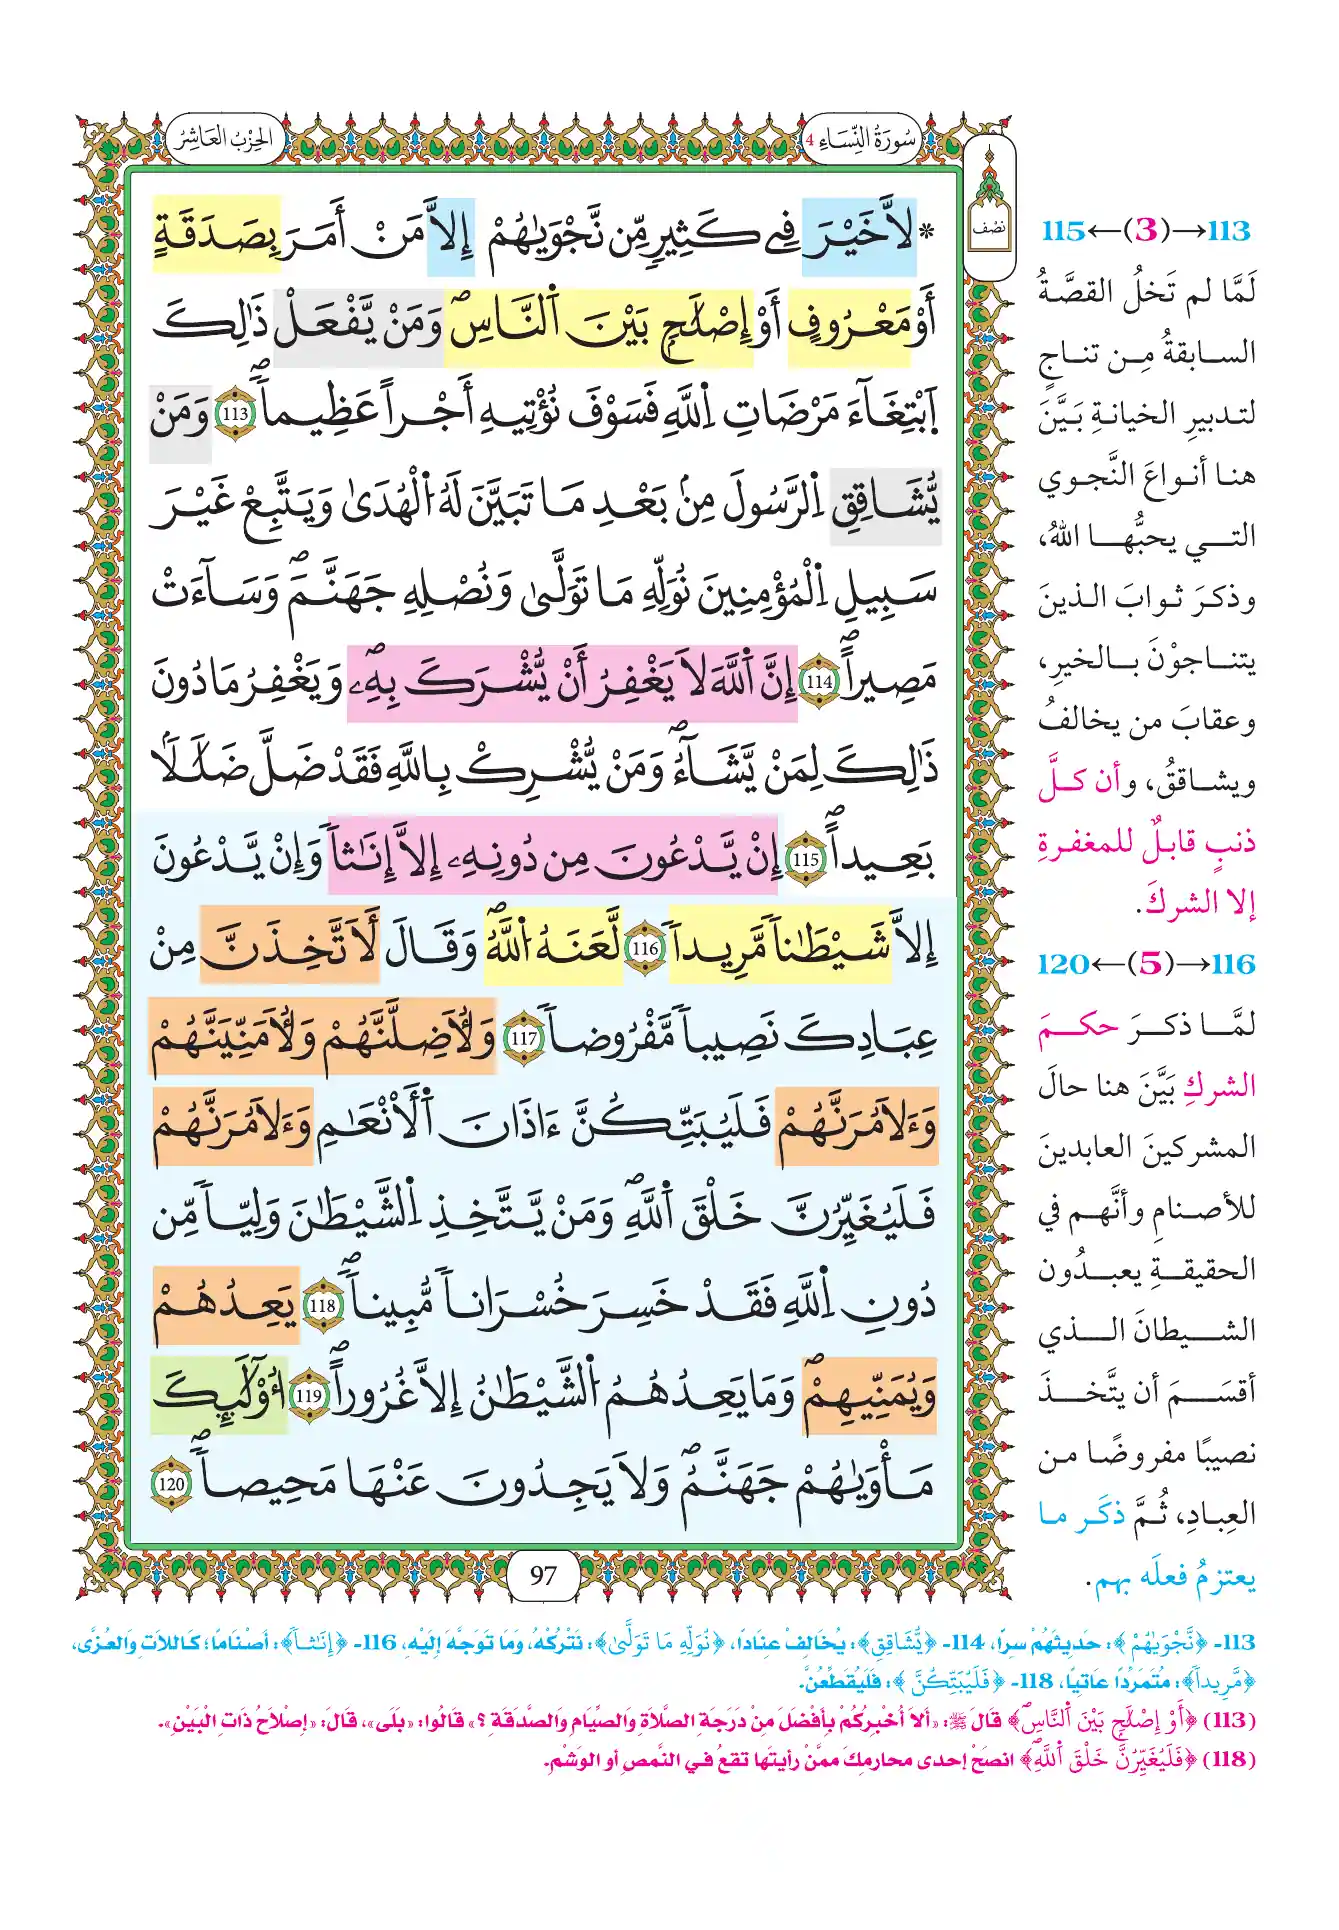 سُورَةُ النِّسَاءِ 4
الحِزْبُ العَاشِرُ
نصْف
* لَّا خَيْرَ فِي كَثِيرٍ مِّن نَّجْوَيٰهُمْ إِلَّا مَنْ أَمَرَ بِصَدَقَةٍ
أَوْ مَعْرُوفٍ أَوْ إِصْلَٰحٍ بَيْنَ اَ۬لنَّاسِۖ وَمَنْ يَّفْعَلْ ذَٰلِكَ
اَ۪بْتِغَآءَ مَرْضَاتِ اِ۬للَّهِ فَسَوْفَ نُؤْتِيهِ أَجْراً عَظِيماًۖ 113 وَمَنْ
يُّشَاقِقِ اِ۬لرَّسُولَ مِنۢ بَعْدِ مَا تَبَيَّنَ لَهُ اُ۬لْهُدَىٰ وَيَتَّبِعْ غَيْرَ
سَبِيلِ اِ۬لْمُؤْمِنِينَ نُوَلِّهِ مَا تَوَلَّىٰ وَنُصْلِهِ جَهَنَّمَۖ وَسَآءَتْ
مَصِيراًۖ 114 إِنَّ اَ۬للَّهَ لَا يَغْفِرُ أَنْ يُّشْرَكَ بِهِۦۖ وَيَغْفِرُ مَا دُونَ
ذَٰلِكَ لِمَنْ يَّشَآءُۖ وَمَنْ يُّشْرِكْ بِاللَّهِ فَقَدْ ضَلَّ ضَلَٰلاً
بَعِيداًۖ 115 إِنْ يَّدْعُونَ مِن دُونِهِۦ إِلَّا إِنَٰثاً وَإِنْ يَّدْعُونَ
إِلَّا شَيْطَٰناً مَّرِيداً 116 لَّعَنَهُ اُ۬للَّهُۖ وَقَالَ لَأَتَّخِذَنَّ مِنْ
عِبَادِكَ نَصِيباً مَّفْرُوضاً 117 وَلَأُضِلَّنَّهُمْ وَلَأُمَنِّيَنَّهُمْ
وَءَلَامُرَنَّهُمْ فَلَيُبَتِّكُنَّ ءَاذَانَ اَ۬لْأَنْعَٰمِ وَءَلَامُرَنَّهُمْ
فَلَيُغَيِّرُنَّ خَلْقَ اَ۬للَّهِۖ وَمَنْ يَّتَّخِذِ اِ۬لشَّيْطَٰنَ وَلِيّاً مِّن
دُونِ اِ۬للَّهِ فَقَدْ خَسِرَ خُسْرَاناً مُّبِيناًۖ 118 يَعِدُهُمْ
وَيُمَنِّيهِمْۖ وَمَا يَعِدُهُمُ اُ۬لشَّيْطَٰنُ إِلَّا غُرُوراًۖ 119 أُوْلَٰٓئِكَ
مَأْوَيٰهُمْ جَهَنَّمُۖ وَلَا يَجِدُونَ عَنْهَا مَحِيصاًۖ 120
97
113→(3)←115
لَمَّا لم تَخلُ القصَّةُ
السابقةُ مِن تناجٍ
لتدبيرِ الخيانةِ بَيَّنَ
هنا أنواعَ النَّجوي
التي يحبُّها اللهُ،
وذكرَ ثوابَ الذينَ
يتناجوْنَ بالخيرِ،
وعقابَ من يخالفُ
ويشاققُ، وأن كلَّ
ذنبٍ قابلٌ للمغفرةِ
إلا الشركَ.
116→(5)←120
لمَّا ذكرَ حكمَ
الشركِ بَيَّنَ هنا حالَ
المشركينَ العابدينَ
للأصنامِ وأنَّهم في
الحقيقةِ يعبدُون
الشيطانَ الذي
أقسَمَ أن يتَّخذَ
نصيبًا مفروضًا من
العِبادِ، ثُمَّ ذكَر ما
يعتزمُ فعلَه بهم.
113- ﴿نَّجْوَيٰهُمْ﴾: حَدِيثَهُمْ سِرًا، 114- ﴿يُّشَاقِقِ﴾: يُخَالِفْ عِنَادًا، ﴿نُوَلِّهِ مَا تَوَلَّىٰ﴾: نَتْرُكْهُ، وَمَا تَوَجَّهَ إِلَيْهِ، 116- ﴿إِنَٰثاً﴾: أصْنَامًا؛ كَاللاَتِ وَالعُزَّى،
﴿مَّرِيداً﴾: مُتَمَرِّدًا عَاتِيًا، 118- ﴿فَلَيُبَتِّكُنَّ﴾: فَلَيُقَطِّعُنَّ.
(113) ﴿أَوْ إِصْلَٰحٍ بَيْنَ اَ۬لنَّاسِۖ﴾ قَالَ ﷺ: «أَلاَ أُخْبِرُكُمْ بِأَفْضَلَ مِنْ دَرَجَةِ الصَّلاَةِ وَالصِّيَامِ وَالصَّدَقَةِ ؟» قَالُوا: «بَلَى»، قَالَ: «إِصْلاَحُ ذَاتِ الْبَيْنِ».
(118) ﴿فَلَيُغَيِّرُنَّ خَلْقَ اَ۬للَّهِۖ﴾ انصَحْ إحدى محارمِكَ ممَّنْ رأيتَها تقعُ في النَّمصِ أو الوَشْمِ.